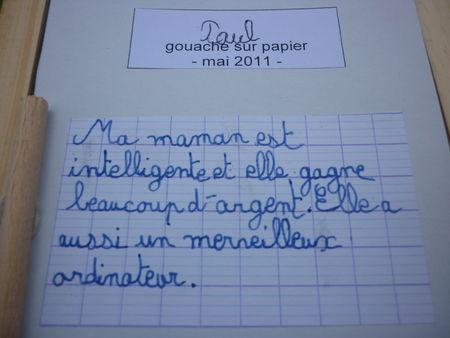 Paul
gouache sur papier
- mai 2011 -
Ma maman est
intelligente et elle gagne
beaucoup d'argent. Elle a
aussi un merveilleux
ordinateur.